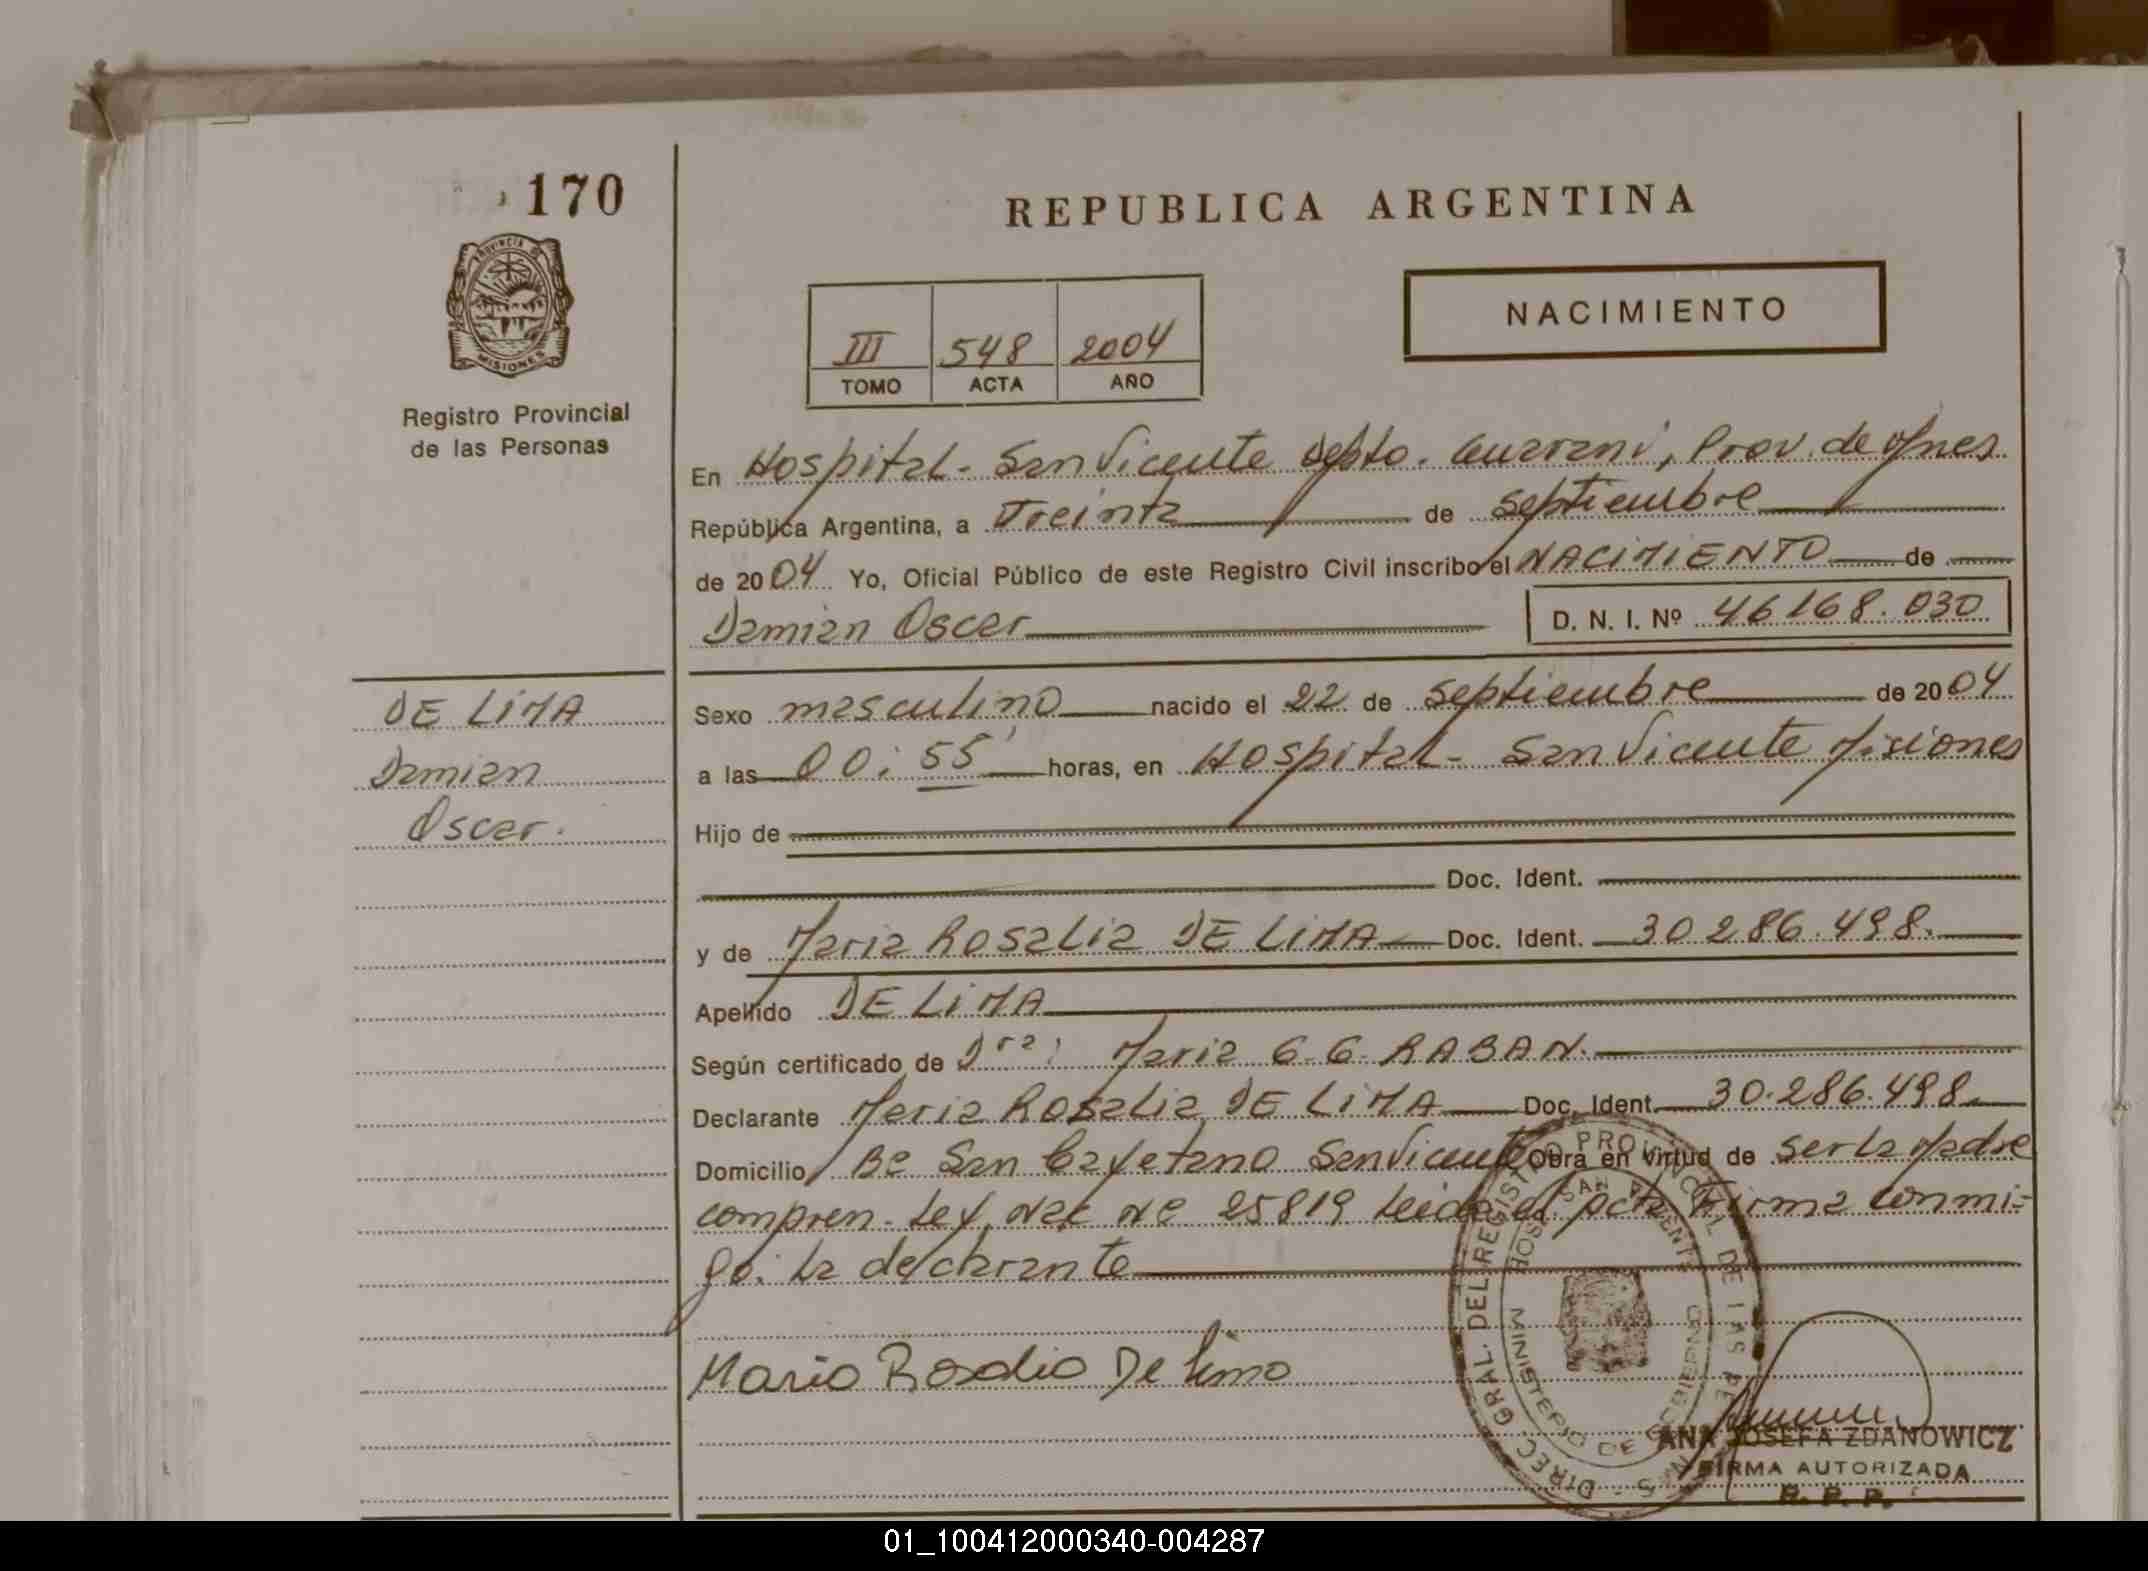 170
REPUBLICA ARGENTINA
PROVINCIA DE
MISIONES
Registro Provincial
de las Personas
III 548 2004
TOMO ACTA AÑO
NACIMIENTO
En Hospital - San Vicente Dpto. Guarani, Prov. de Mnes
República Argentina, a Treinta de septiembre
de 2004 Yo, Oficial Público de este Registro Civil inscribo el NACIMIENTO de
Damian Oscar D. N. I. Nº 46168.030
DE LIMA
Damian
Oscar.
Sexo masculino nacido el 22 de septiembre de 2004
a las 00:55' horas, en Hospital - San Vicente Misiones
Hijo de
Doc. Ident.
y de Maria Rosalia DE LIMA Doc. Ident. 30.286.498.
Apellido DE LIMA
Según certificado de Dra: Maria G. G. RABAN.
Declarante Maria Rosalia DE LIMA Doc. Ident. 30.286.498.
Domicilio Bº San Cayetano San Vicente Obra en virtud de ser la Madre
compren. Ley. Nac Nº 25819 Leida el acta Firma conmi-
go: la declarante
Maria Rosalia De Lima
DIREC. GRAL. DEL REGISTRO PROVINCIAL DE LAS PERSONAS
HOSP. SAN VICENTE
MINISTERIO DE GOBIERNO
ANA JOSEFA ZDANOWICZ
FIRMA AUTORIZADA
R. P. P.
01_100412000340-004287